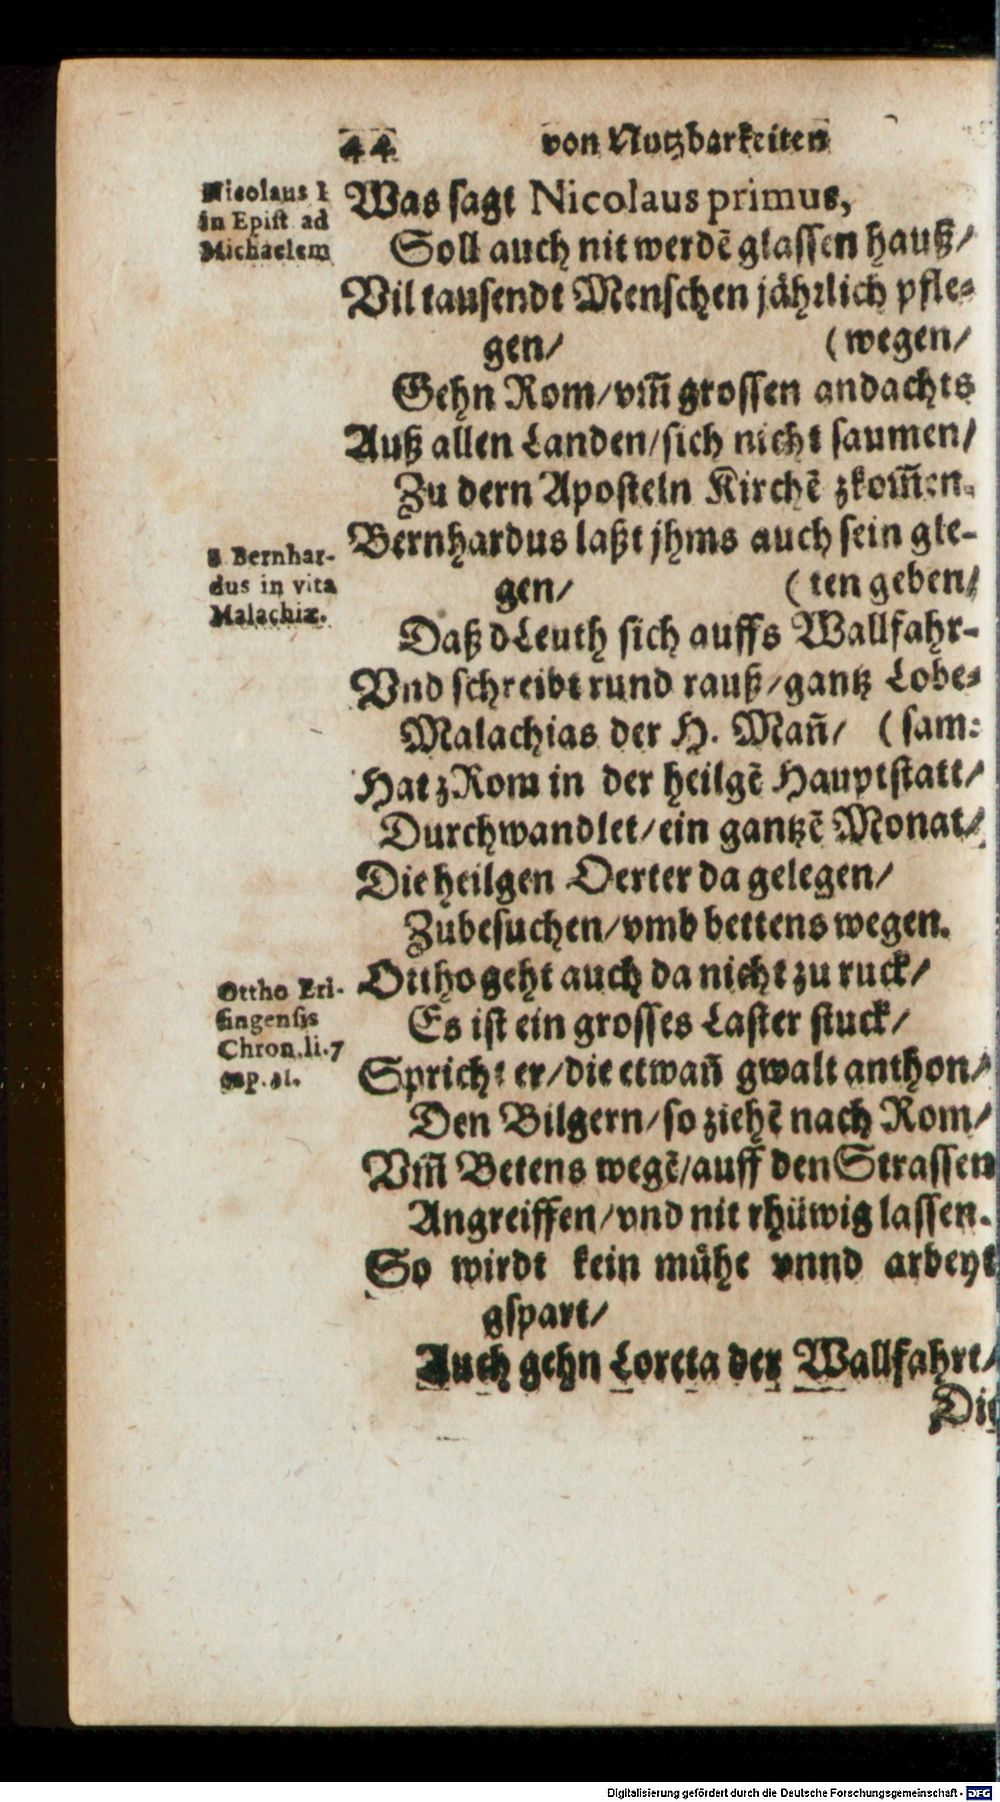 44 von Nutzbarkeiten
Nicolaus I
in Epist ad
Michaelem
Was sagt Nicolaus primus,
Soll auch nit werdē glassen hauß/
Vil tausendt Menschen jährlich pfle-
gen/ (wegen/
Gehn Rom/vm̄ grossen andachts
Auß allen Landen/sich nicht saumen/
Zu dern Aposteln Kirchē zkom̄en.
S Bernhar-
dus in vita
Malachiæ.
Bernhardus laßt jhms auch sein gle-
gen/ (ten geben/
Daß dLeuth sich auffs Wallfahr-
Vnd schreibt rund rauß/gantz Lobe-
Malachias der H. Mañ/ (sam:
Hat zRom in der heilgē Hauptstatt/
Durchwandlet/ein gantzē Monat/
Die heilgen Oerter da gelegen/
Zubesuchen/vmb bettens wegen.
Ottho Fri-
singensis
Chron.li.7
cap.
Ottho geht auch da nicht zu ruck/
Es ist ein grosses Laster stuck/
Spricht er/die etwañ gwalt anthon/
Den Bilgern/so ziehē nach Rom/
Vm̄ Betens wegē/auff den Strassen
Angreiffen/vnd nit rhüwig lassen.
So wirdt kein mühe vnnd arbeyt
gspart/
Auch gehn Loreta der Wallfahrt/
Die
Digitalisierung gefördert durch die Deutsche Forschungsgemeinschaft - DFG